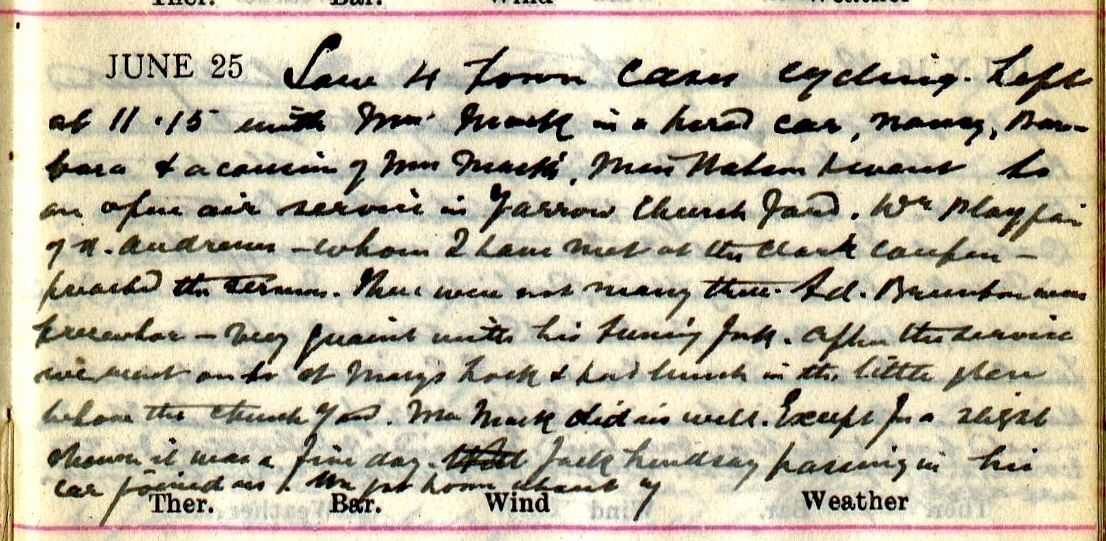 Ther. Bar. Wind Weather
JUNE 25 Saw 4 town cases cycling. Left
at 11.15 with Mrs. Mack in a hired car, Nancy, Bar-
bara & a cousin of Mrs Mack's, Miss Watson & went to
an open air service in Yarrow Church Yard. Dr Playfair
of St. Andrews - whom I have met at the Clark confer -
preached the sermon. There were not many there. Ad. Brunton was
precentor - very quaint with his tuning fork. After the service
we went on to St Mary's Loch & had lunch in the little glen
below the Church Yard. Mrs Mack did us well. Except for a slight
shower it was a fine day. Jack Lindsay passing in his
car joined us. We got home about
Ther. Bar. Wind Weather